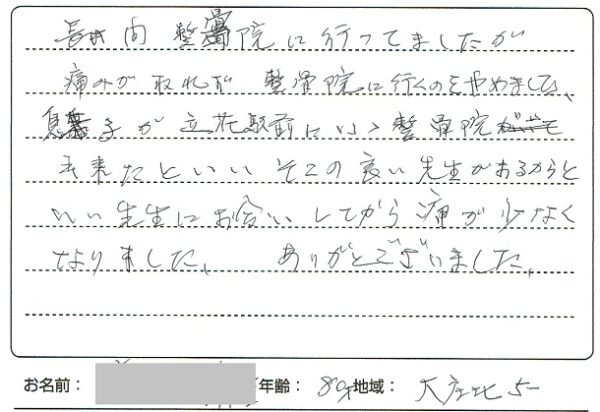 長い間 整骨院に行ってましたが
痛みが取れず 整骨院に行くのをやめました、
息子が立花駅前にいい整骨院
出来たといい そこの良い先生があるからと
いい先生にお会いしてから痛が少なく
なりました、 ありがとうございました、
お名前: 年齢: 80才 地域: 大庄北 5-